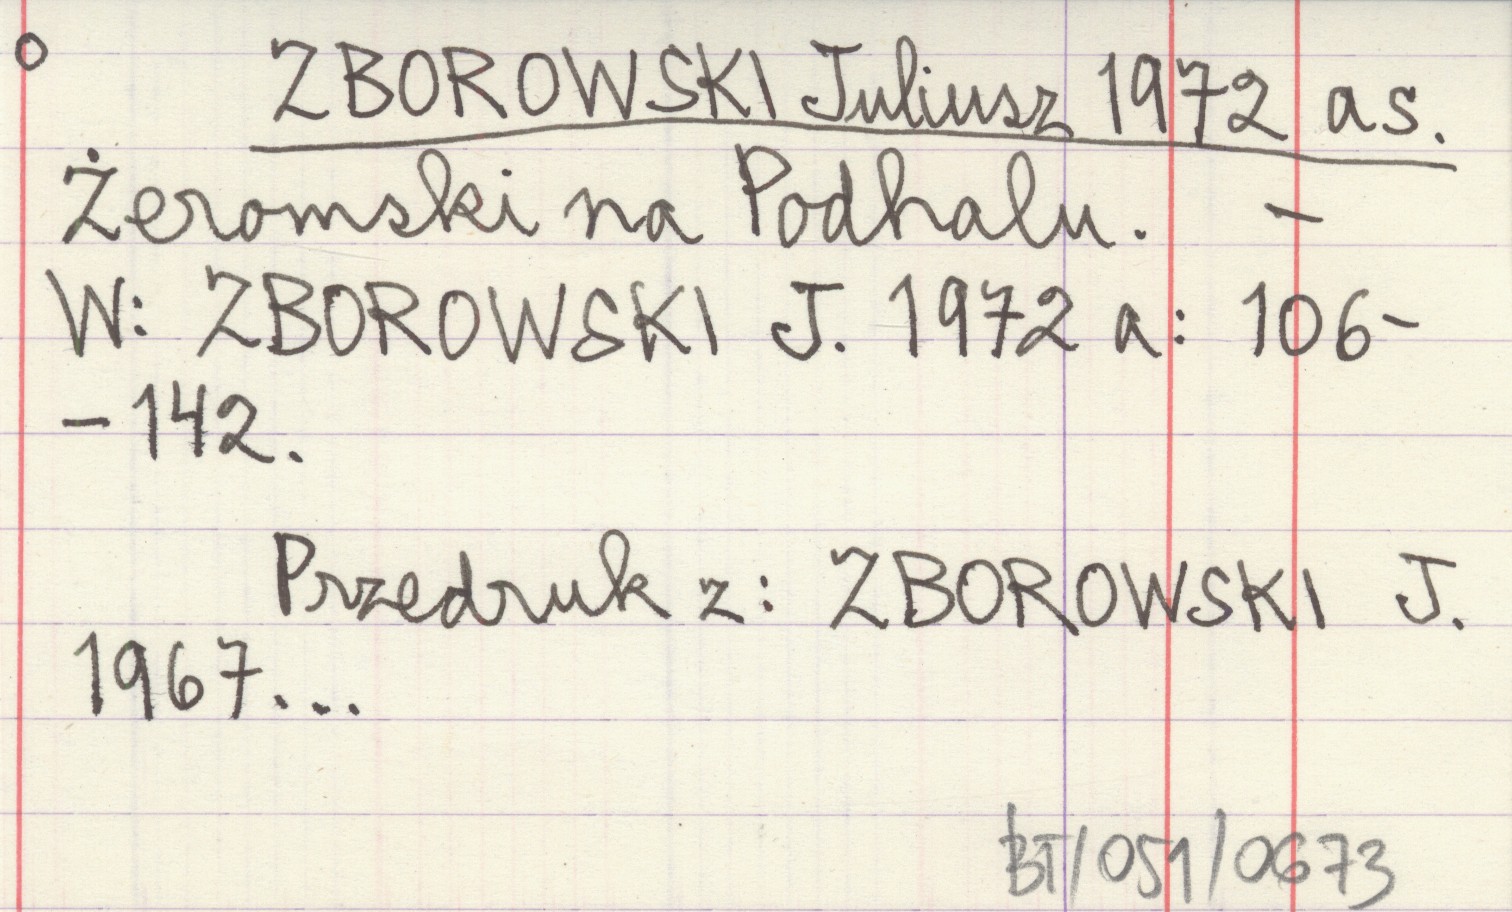 ZBOROWSKI Juliusz 1972 as.
Żeromski na Podhalu. –
W: ZBOROWSKI J. 1972 a: 106–
–142.
Przedruk z: ZBOROWSKI J.
1967...
BT/051/0673